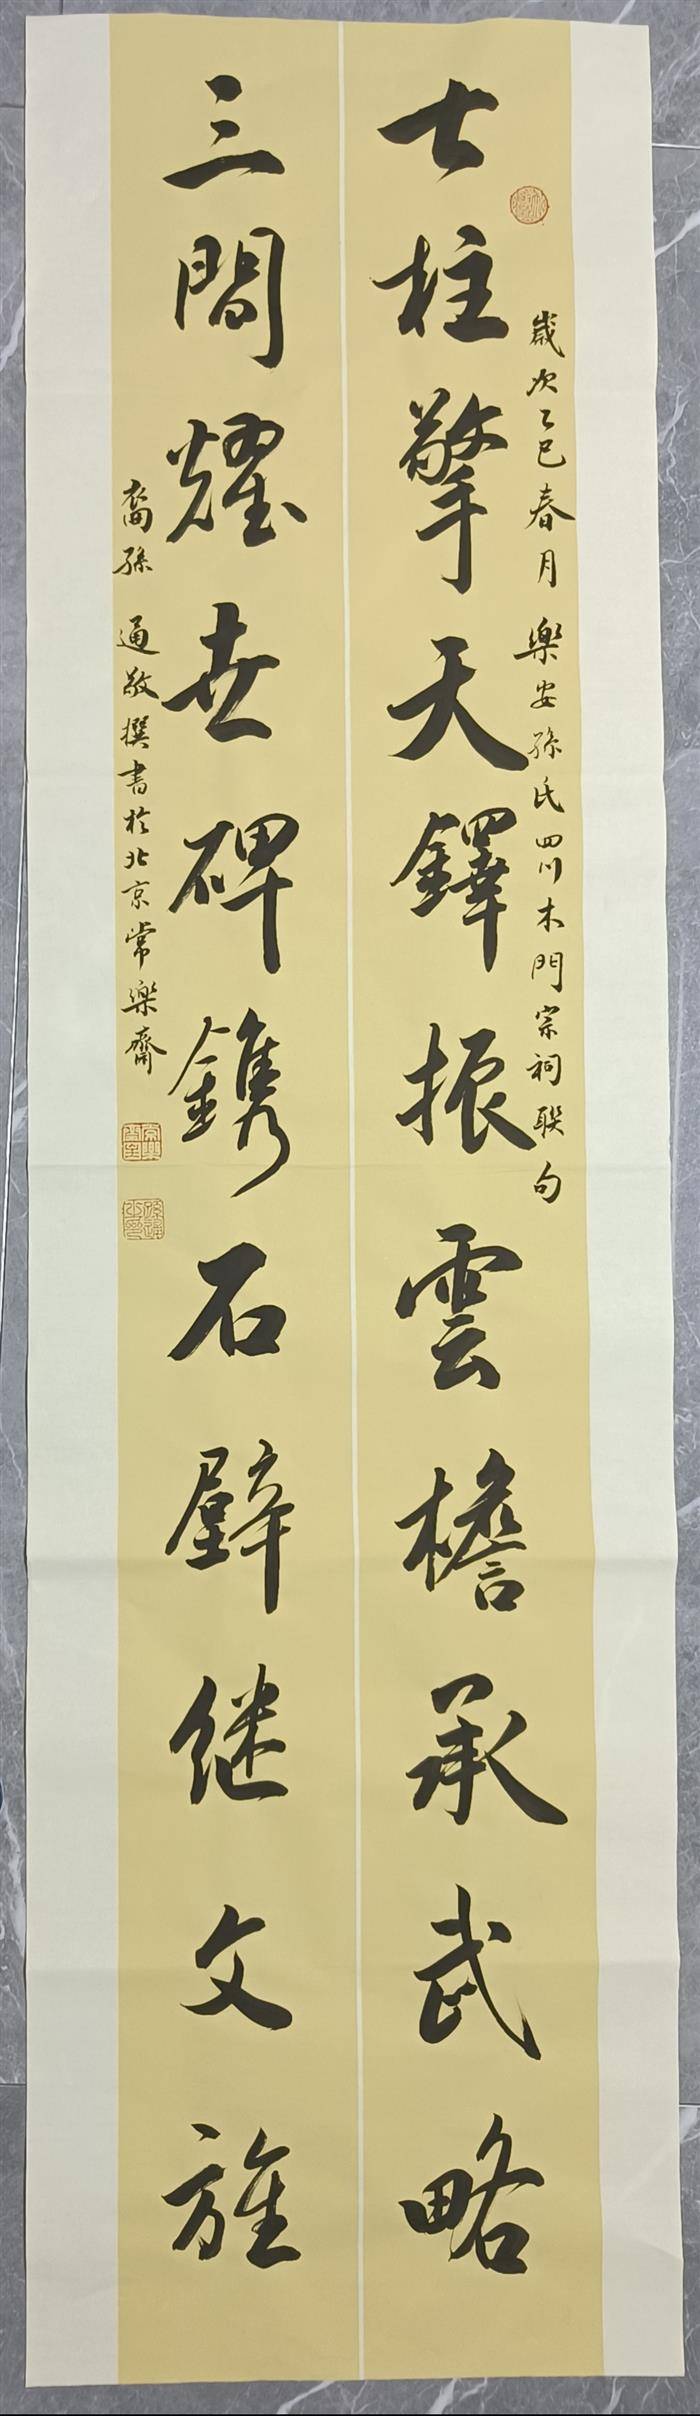 歲次乙巳春月 樂安孫氏四川木門宗祠聯句
七柱擎天鐸振雲檐承武略
三間耀世碑鐫石壁继文旌
裔孫 通敬撰書於北京常樂齋